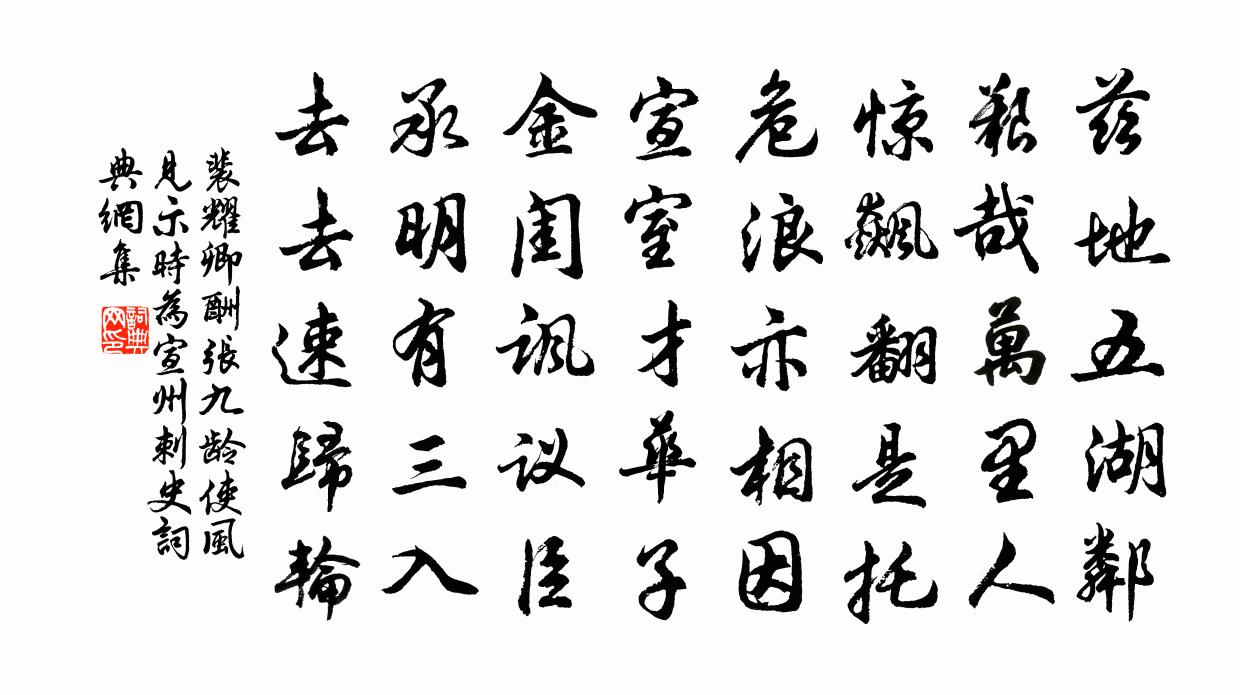 茲地五湖鄰
艱哉萬里人
惊飙翻是托
危浪亦相因
宣室才華子
金閨讽议臣
承明有三入
去去速歸輪
裴耀卿酬張九龄使風
見示時為宣州刺史詞
典網集
詞典網印